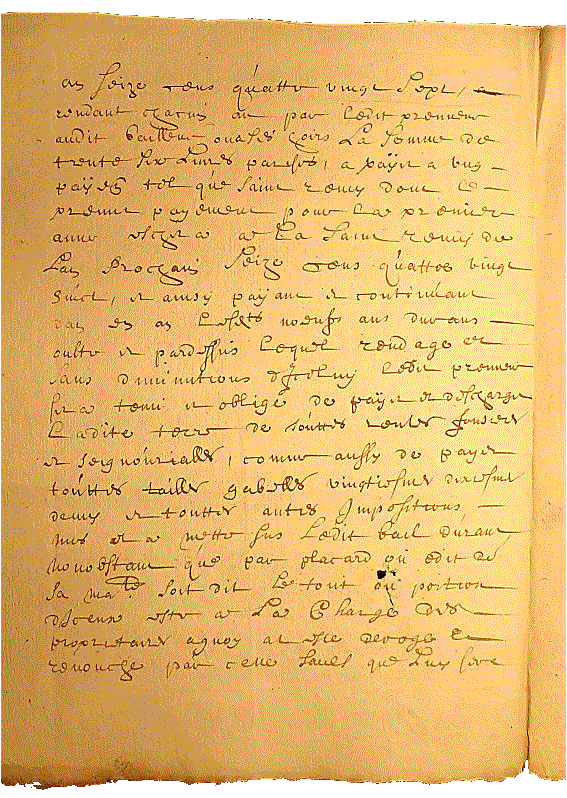 an seize cens quattre vingt sept, en
rendant chacun an par ledit preneur
audit bailleur ou a ses hoirs la somme de
trente six livres parisis, a payer a ung
payer tel que saint remy dont le
premier payement pour la premiere
anne eschera a la saint remy de
lan prochain seize cens quattre vingt
huict, et ainsy payant et continuant
dan en an lesdits noeuf ans durans
oultre et pardessus lequel rendage et
sans diminutions diceluy ledit preneur
sera tenu et obligé de payer et descharger
ladite terre de touttes rentes foncieres
et seignourialles, comme aussy de payer
touttes tailles gabelles vingtiesme dixiesme
deniers et touttes autres impositions,
mis et a mettre sus ledit bail durant
nonobstant que par placard ou edit de
sa ma.te soit dit le tout ou portion
diceux estre a la charge des
proprietaires a quoy at esté derogé et
renonché par cette sauf que luy sera